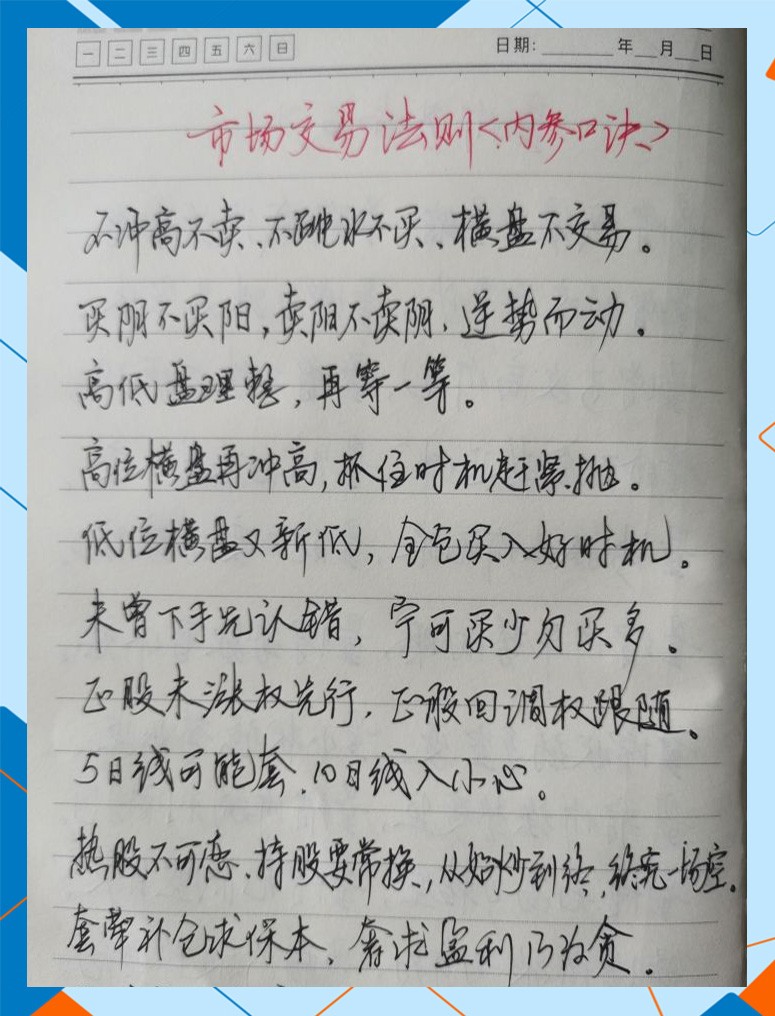 一 二 三 四 五 六 日 日期: 年 月 日
市场交易法则<内参口诀>
不冲高不卖、不跳水不买、横盘不交易。
买阴不买阳,卖阳不卖阴,逆势而动。
高低盘理整,再等一等。
高位横盘再冲高,抓住时机赶紧抛。
低位横盘又新低,全仓买入好时机。
未曾下手先认错,宁可买少勿买多。
正股未涨权先行,正股回调权跟随。
5日线可能套,10日线入小心。
热股不可恋、持股要常换,从始炒到终,终究一场空。
套牢补仓求保本,奢求盈利乃为贪。